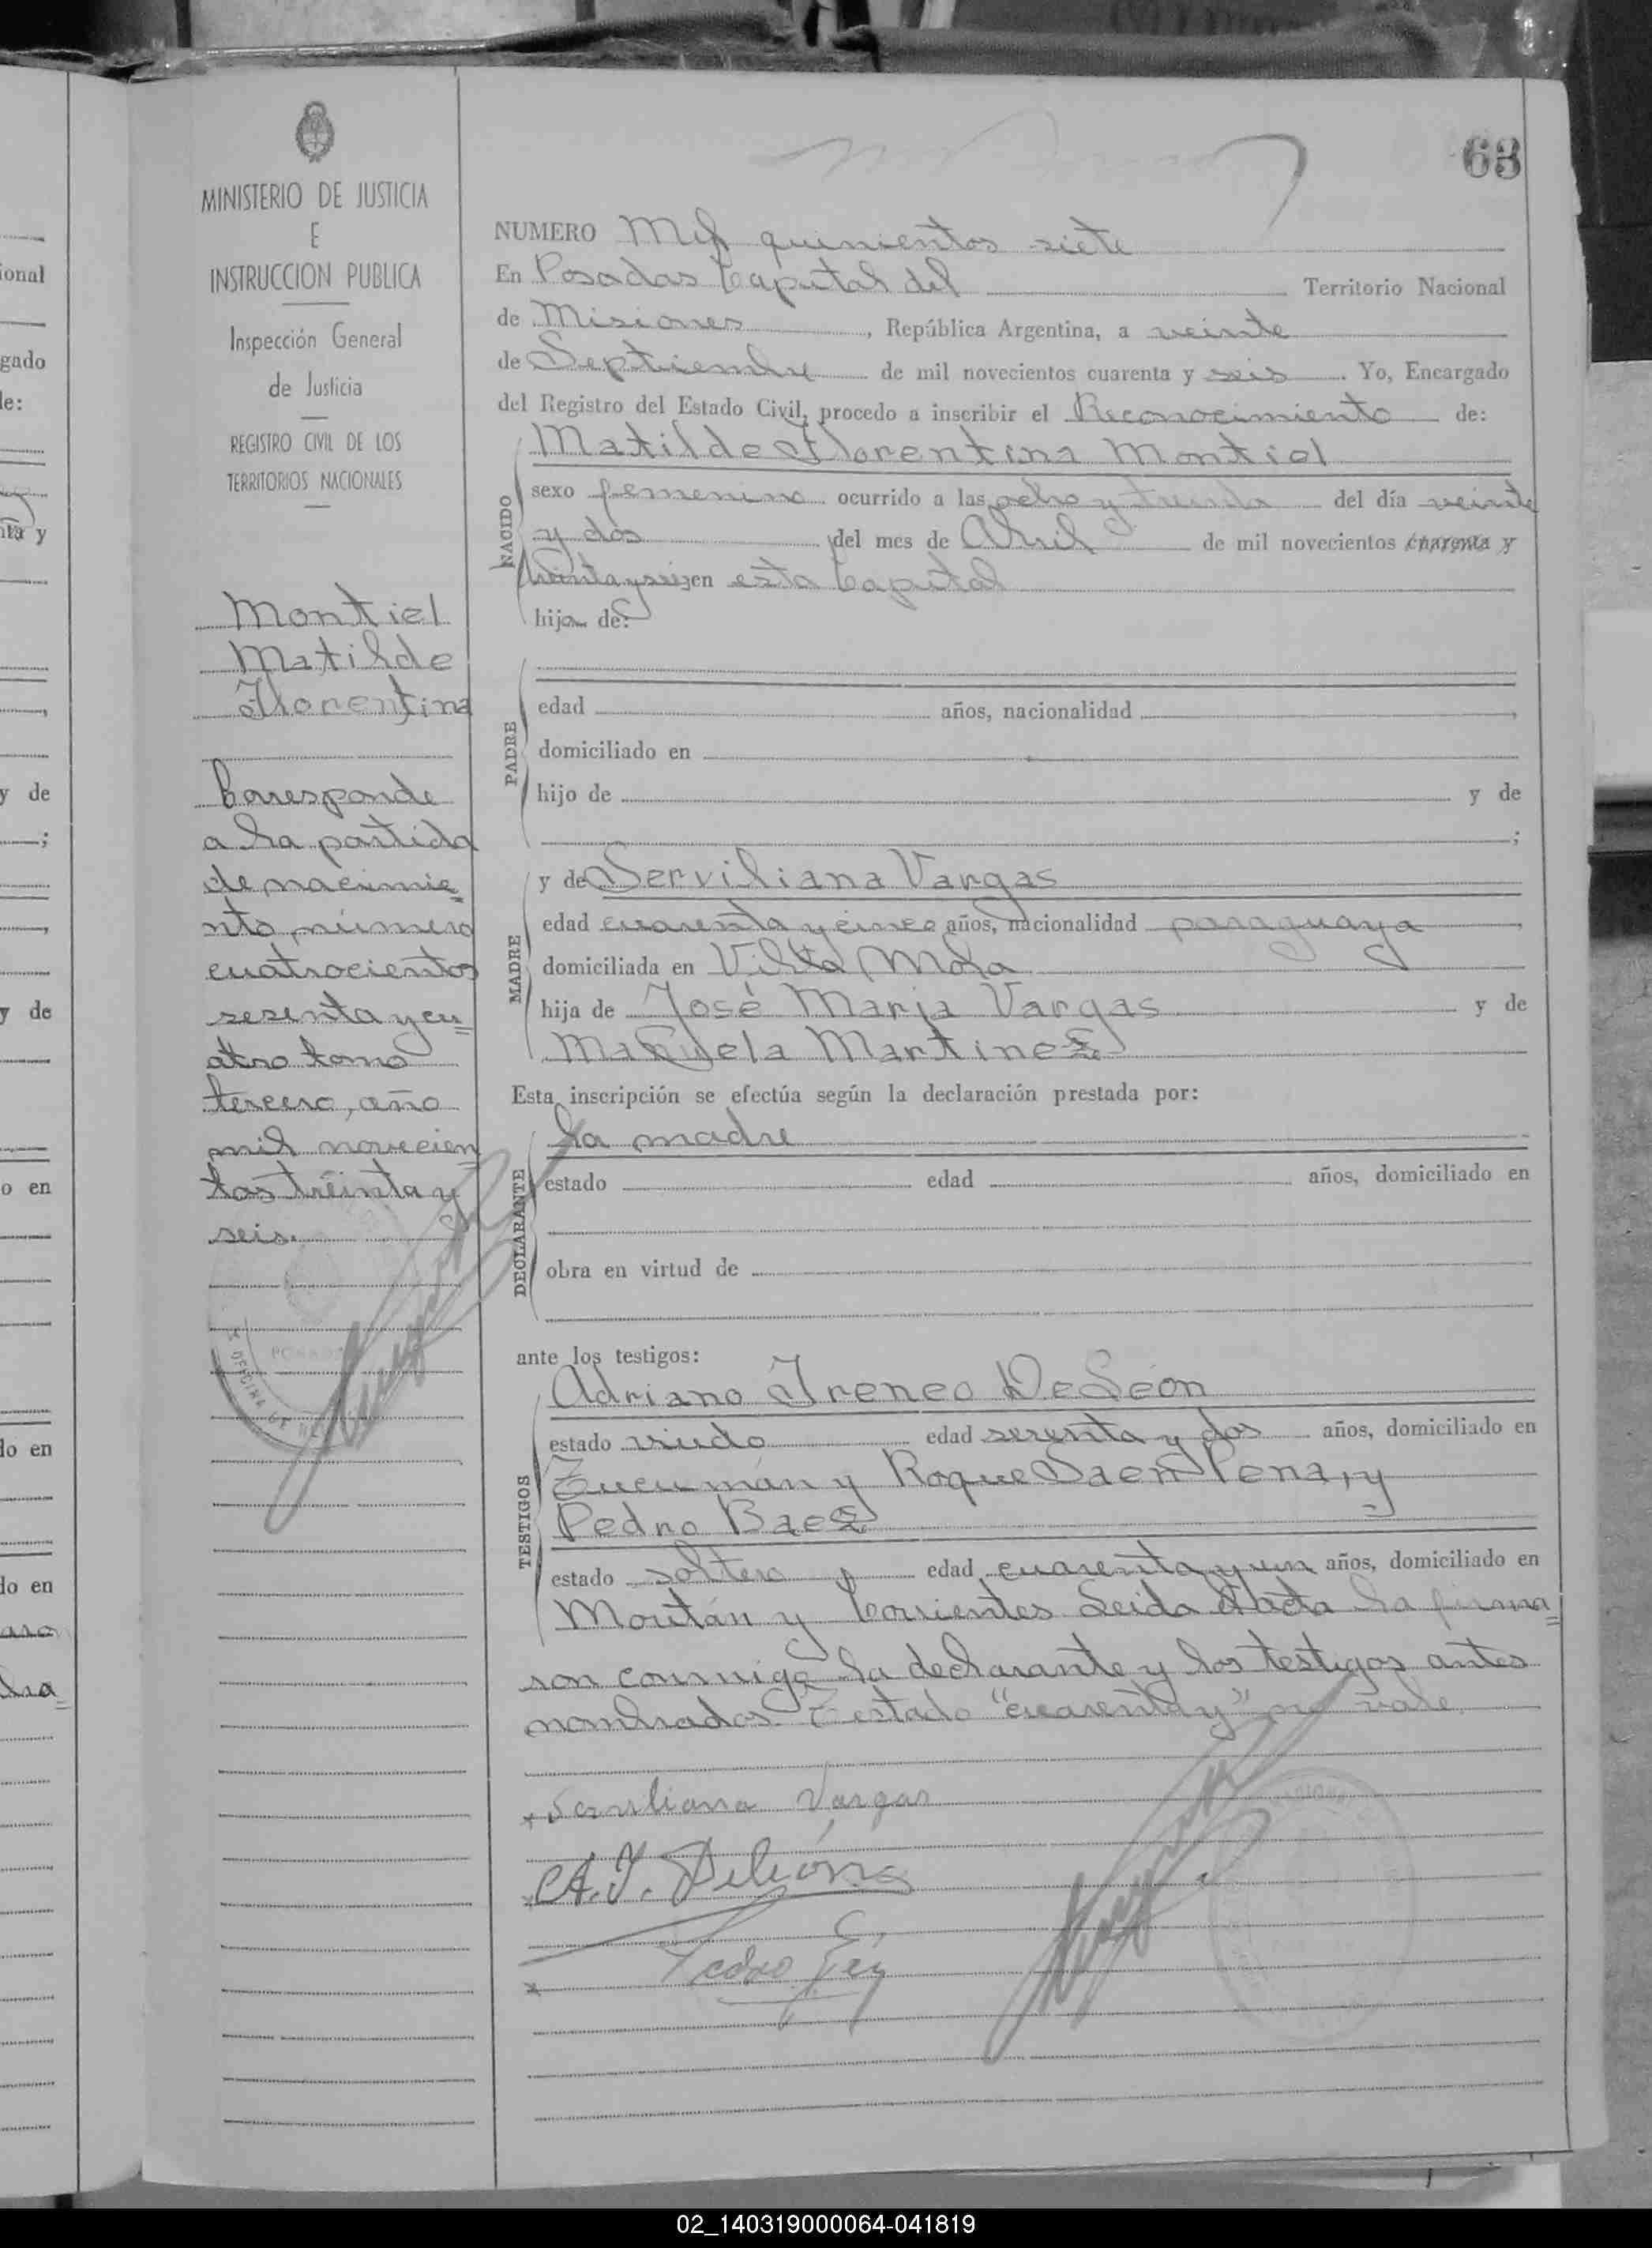 63
MINISTERIO DE JUSTICIA
E
INSTRUCCION PUBLICA
Inspección General
de Justicia
REGISTRO CIVIL DE LOS
TERRITORIOS NACIONALES
Montiel
Matilde
Florentina
Corresponde
a la partida
de nacimie=
nto número
cuatrocientos
sesenta y cu=
atro tomo
tercero, año
mil novecien
tos treinta y
seis.
NUMERO Mil quinientos siete
En Posadas Capital del Territorio Nacional
de Misiones, República Argentina, a veinte
de Septiembre de mil novecientos cuarenta y seis. Yo, Encargado
del Registro del Estado Civil, procedo a inscribir el Reconocimiento de:
Matilde Florentina Montiel
NACIDO
sexo femenino ocurrido a las ocho y treinta del día veinte
y dos del mes de Abril de mil novecientos cuarenta y
treinta y seis en esta Capital
hija de:
PADRE
edad años, nacionalidad ,
domiciliado en
hijo de y de
;
MADRE
y de Serviliana Vargas
edad cuarenta y cinco años, nacionalidad paraguaya,
domiciliada en Villa Mola
hija de José Maria Vargas y de
Manuela Martinez
Esta inscripción se efectúa según la declaración prestada por:
la madre
DECLARANTE
estado edad años, domiciliado en
obra en virtud de
ante los testigos:
TESTIGOS
Adriano Ireneo De León
estado viudo edad sesenta y dos años, domiciliado en
Tucumán y Roque Saen Pena, y
Pedro Baez
estado soltero edad cuarenta y un años, domiciliado en
Moritán y Corrientes Leida el acta la firma=
ron conmigo la declarante y los testigos antes
nombrados. Testado "cuarenta y" no vale
Serviliana Vargas
A. I. De León
Pedro
02_140319000064-041819